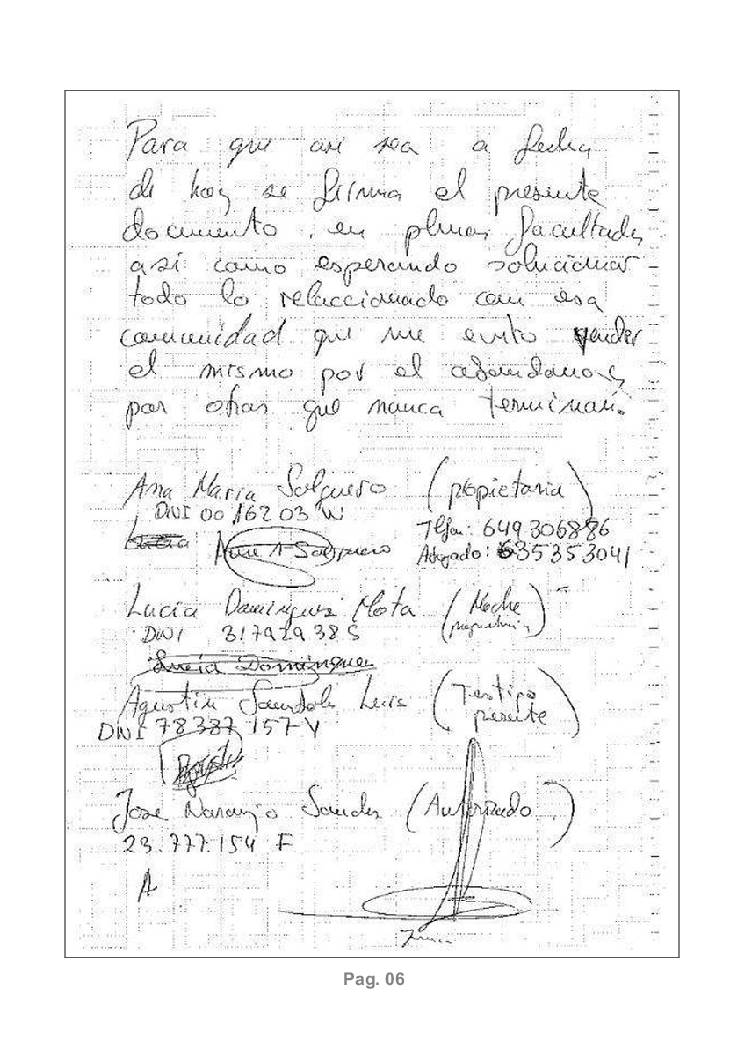 Para que asi sea a fecha
de hoy se firma el presente
documento, en plenas facultades
así como esperando solucionar
todo lo relaccionado con esa
comunidad que me evito vender
el mismo por el abandono y
por obras que nunca terminan.
Ana Maria Salguero (propietaria)
DNI 00 16203 W
Tlfon: 649 306886
Abogado: 635353041
Lucia Dominguez Mota (Madre
DNI 31792938 S
Lucia Dominguez
Agustin Luis (Testigo
presente)
DNI 78387157 V
Jose Naranjo (Autorizado)
23.777.154 F
Pag. 06